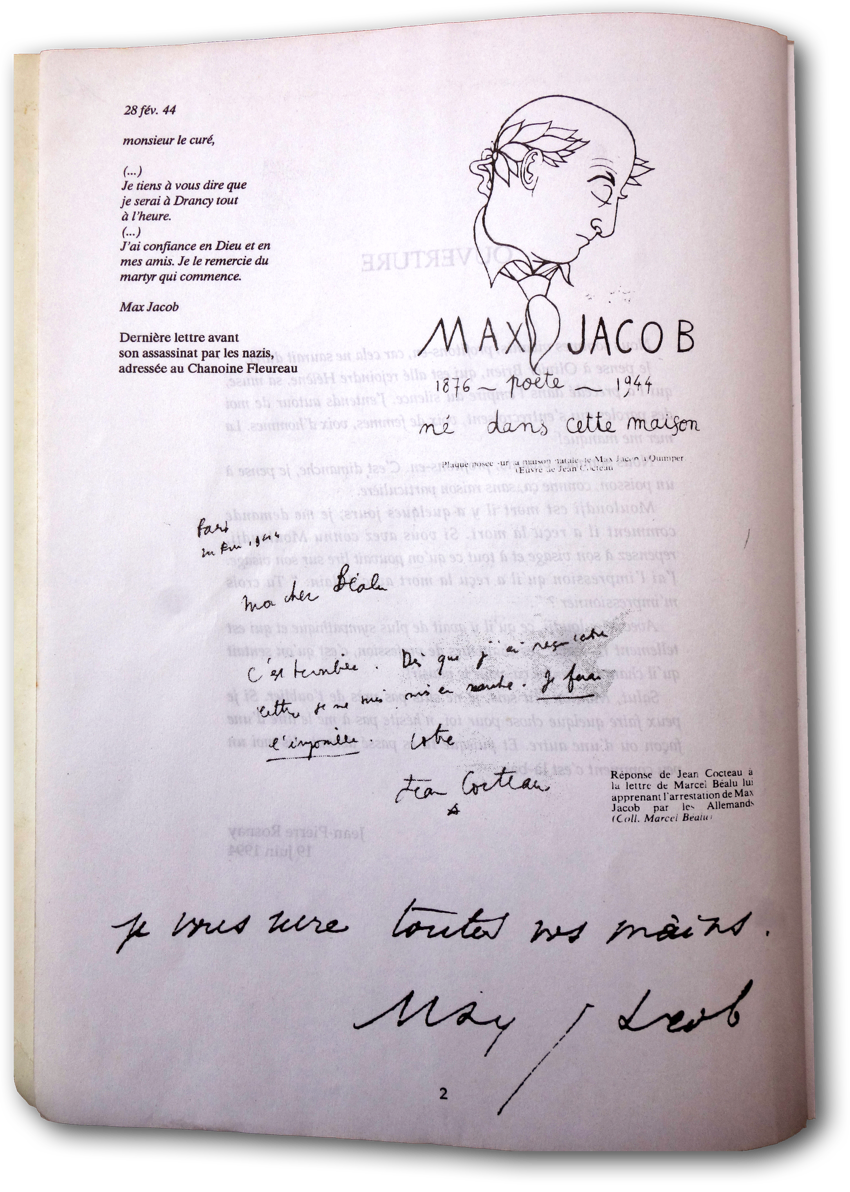 28 fév. 44
monsieur le curé,
(...)
Je tiens à vous dire que
je serai à Drancy tout
à l'heure.
(...)
J'ai confiance en Dieu et en
mes amis. Je le remercie du
martyr qui commence.
Max Jacob
Dernière lettre avant
son assassinat par les nazis,
adressée au Chanoine Fleureau
MAX JACOB
1876 — poète — 1944
né dans cette maison
Plaque posée sur la maison natale de Max Jacob à Quimper
Œuvre de Jean Cocteau
Paris
1944
Mon cher Béalu
C'est terrible. Dès que j'ai
lettre je me suis mis en marche. Je ferai
l'impossible. Votre
Jean Cocteau
Réponse de Jean Cocteau à
la lettre de Marcel Béalu lui
apprenant l'arrestation de Max
Jacob par les Allemands
(Coll. Marcel Béalu)
je vous serre toutes vos mains.
Max Jacob
2